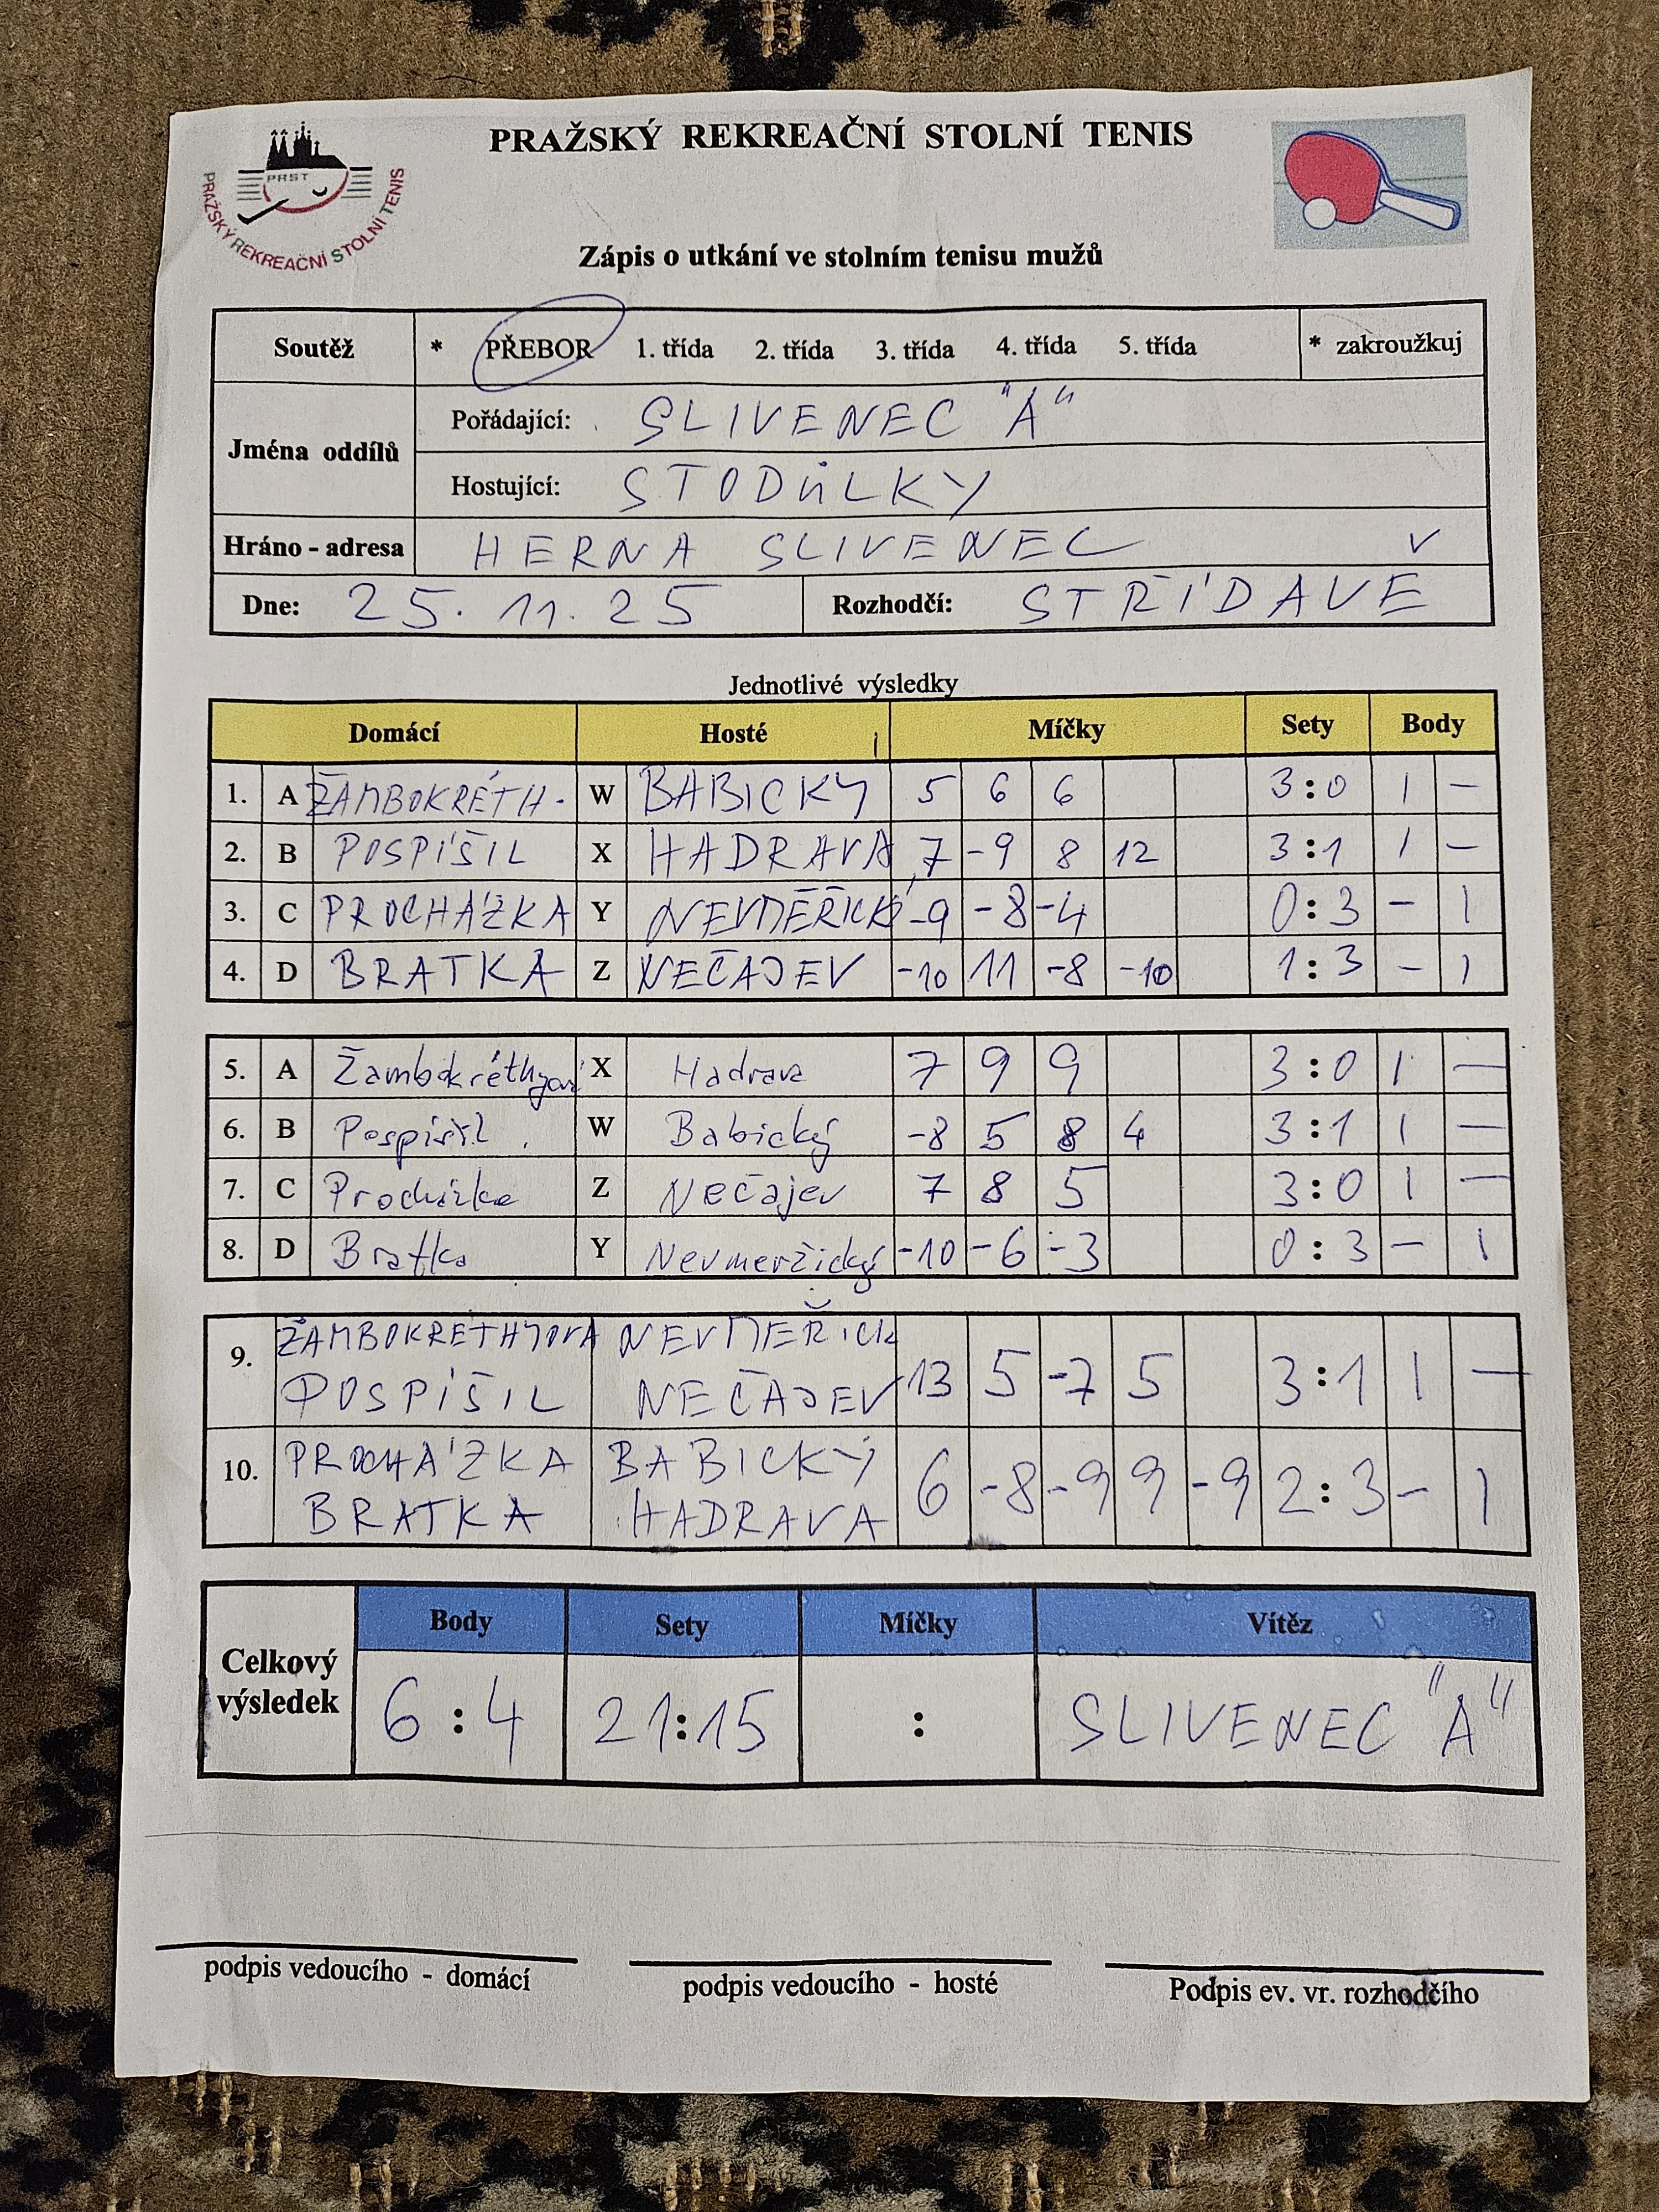 PRAŽSKÝ REKREAČNÍ STOLNÍ TENIS
PRST
PRAŽSKÝ REKREAČNÍ STOLNÍ TENIS
Zápis o utkání ve stolním tenisu mužů
Soutěž * PŘEBOR 1. třída 2. třída 3. třída 4. třída 5. třída * zakroužkuj
Jména oddílů
Pořádající: SLIVENEC "A"
Hostující: STODŮLKY
Hráno - adresa HERNA SLIVENEC
Dne: 25.11.25 Rozhodčí: STŘÍDAVĚ
Jednotlivé výsledky
Domácí Hosté Míčky Sety Body
1. A ŽAMBOKRÉTH. W BABICKÝ 5 6 6 3:0 1 –
2. B POSPÍŠIL X HADRAVA 7 -9 8 12 3:1 1 –
3. C PROCHÁZKA Y NEVMĚŘICK -9 -8 -4 0:3 – 1
4. D BRATKA Z NEČAJEV -10 11 -8 -10 1:3 – 1
5. A Žambokréthyová X Hadrava 7 9 9 3:0 1 –
6. B Pospíšil W Babický -8 5 8 4 3:1 1 –
7. C Procházka Z Nečajev 7 8 5 3:0 1 –
8. D Bratka Y Nevmeržický -10 -6 -3 0:3 – 1
9. ŽAMBOKRETHYOVA NEVMEŘICK
POSPÍŠIL NEČAJEV 13 5 -7 5 3:1 1 –
10. PROCHÁZKA BABICKÝ
BRATKA HADRAVA 6 -8 -9 9 -9 2:3 – 1
Body Sety Míčky Vítěz
Celkový výsledek 6:4 21:15 : SLIVENEC "A"
podpis vedoucího - domácí podpis vedoucího - hosté Podpis ev. vr. rozhodčího